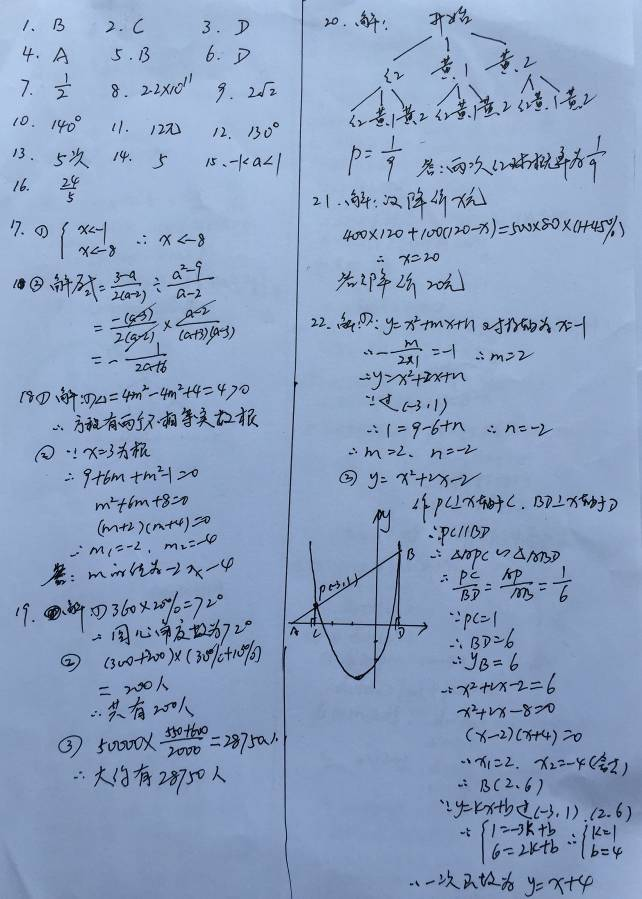 1. B 2. C 3. D
4. A 5. B 6. D
7. 1/2 8. 2.2×10^11 9. 2√2
10. 140° 11. 12元 12. 130°
13. 5次 14. 5 15. -1<a<1
16. 24/5
17. ① { x<-1 x<-8 ∴ x<-8
18 ② 解原式 = 3-a/2(a-2) ÷ a²-9/a-2
= -(a-3)/2(a-2) × a-2/(a+3)(a-3)
= - 1/2a+6
18① 解:①△=4m²-4m²+4=4>0
∴ 方程有两个不相等实数根
② ∵ x=3为根
∴ 9+6m+m²-1=0
m²+6m+8=0
(m+2)(m+4)=0
∴ m₁=-2, m₂=-4
答: m的值为-2或-4
19. 解①360×20%=72°
∴ 圆心角度数为72°
② (300+200)×(30%+10%)
= 200人
∴ 共有200人
③ 50000× 550+600/2000 =28750人
∴ 大约有28750人
20. 解: 开始
红 黄1 黄2
红 黄1 黄2 红 黄1 黄2 红 黄1 黄2
P= 1/9 答:两次红球概率为1/9
21. 解:设降价x元
400×120+100(120-x)=500×80×(1+45%)
∴ x=20
答:降价20元
22. 解①: y=x²+mx+n 对称轴为x=-1
∴ - m/2×1 =-1 ∴ m=2
∴ y=x²+2x+n
∵ 过(-3,1)
∴ 1=9-6+n ∴ n=-2
∴ m=2, n=-2
② y=x²+2x-2
作PC⊥x轴于C, BD⊥x轴于D
∴ PC∥BD
∴ △APC∽△ABD
∴ PC/BD = AP/AB = 1/6
∵ PC=1
∴ BD=6
∴ yB=6
∴ x²+2x-2=6
x²+2x-8=0
(x-2)(x+4)=0
∴ x₁=2, x₂=-4(舍去)
∴ B(2,6)
∵ y=kx+b过(-3,1),(2,6)
∴ { 1=-3k+b 6=2k+b ∴ { k=1 b=4
∴ 一次函数为 y=x+4
y
P(-3,1)
B
A C D